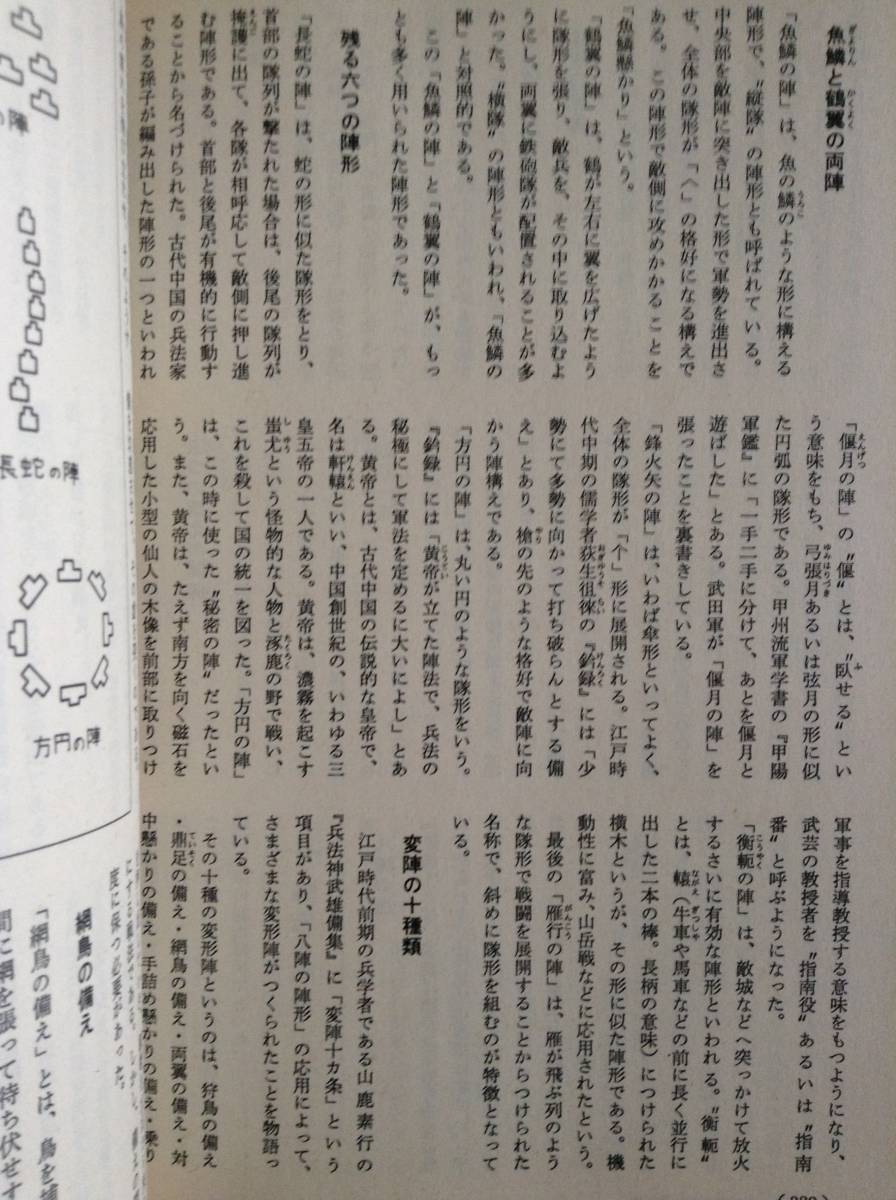 魚鱗と鶴翼の両陣
「魚鱗の陣」は、魚の鱗のような形に構える
陣形で、〝縦隊〟の陣形とも呼ばれている。
中央部を敵陣に突き出した形で軍勢を進出さ
せ、全体の隊形が「へ」の格好になる構えで
ある。この陣形で敵側に攻めかかることを
「魚鱗懸かり」という。
「鶴翼の陣」は、鶴が左右に翼を広げたよう
に隊形を張り、敵兵を、その中に取り込むよ
うにし、両翼に鉄砲隊が配置されることが多
かった。〝横隊〟の陣形ともいわれ、「魚鱗の
陣」と対照的である。
この「魚鱗の陣」と「鶴翼の陣」が、もっ
とも多く用いられた陣形であった。
残る六つの陣形
「長蛇の陣」は、蛇の形に似た隊形をとり、
首部の隊列が撃たれた場合は、後尾の隊列が
掩護に出て、各隊が相呼応して敵側に押し進
む陣形である。首部と後尾が有機的に行動す
ることから名づけられた。古代中国の兵法家
である孫子が編み出した陣形の一つといわれ
「偃月の陣」の〝偃〟とは、〝臥せる〟とい
う意味をもち、弓張月あるいは弦月の形に似
た円弧の隊形である。甲州流軍学書の『甲陽
軍鑑』に「一手二手に分けて、あとを偃月と
遊ばした」とある。武田軍が「偃月の陣」を
張ったことを裏書きしている。
「鋒火矢の陣」は、いわば傘形といってよく、
全体の隊形が「个」形に展開される。江戸時
代中期の儒学者荻生徂徠の『鈐録』には「少
勢にて多勢に向かって打ち破らんとする備
え」とあり、槍の先のような格好で敵陣に向
かう陣構えである。
「方円の陣」は、丸い円のような隊形をいう。
『鈐録』には「黄帝が立てた陣法で、兵法の
秘極にして軍法を定めるに大いによし」とあ
る。黄帝とは、古代中国の伝説的な皇帝で、
名は軒轅といい、中国創世紀の、いわゆる三
皇五帝の一人である。黄帝は、濃霧を起こす
蚩尤という怪物的な人物と涿鹿の野で戦い、
これを殺して国の統一を図った。「方円の陣」
は、この時に使った〝秘密の陣〟だったとい
う。また、黄帝は、たえず南方を向く磁石を
応用した小型の仙人の木像を前部に取りつけ
軍事を指導教授する意味をもつようになり、
武芸の教授者を〝指南役〟あるいは〝指南
番〟と呼ぶようになった。
「衡軛の陣」は、敵城などへ突っかけて放火
するさいに有効な陣形といわれる。〝衡軛〟
とは、轅（牛車や馬車などの前に長く並行に
出した二本の棒。長柄の意味）につけられた
横木というが、その形に似た陣形である。機
動性に富み、山岳戦などに応用されたという。
最後の「雁行の陣」は、雁が飛ぶ列のよう
な隊形で戦闘を展開することからつけられた
名称で、斜めに隊形を組むのが特徴となって
いる。
変陣の十種類
江戸時代前期の兵学者である山鹿素行の
『兵法神武雄備集』に「変陣十カ条」という
項目があり、「八陣の陣形」の応用によって、
さまざまな変形陣がつくられたことを物語っ
ている。
その十種の変形陣というのは、狩鳥の備え
・鼎足の備え・網鳥の備え・両翼の備え・対
中懸かりの備え・手詰め懸かりの備え・乗り
の陣
長蛇の陣
方円の陣
網鳥の備え
「網鳥の備え」とは、鳥を捕
間に網を張って待ち伏せす